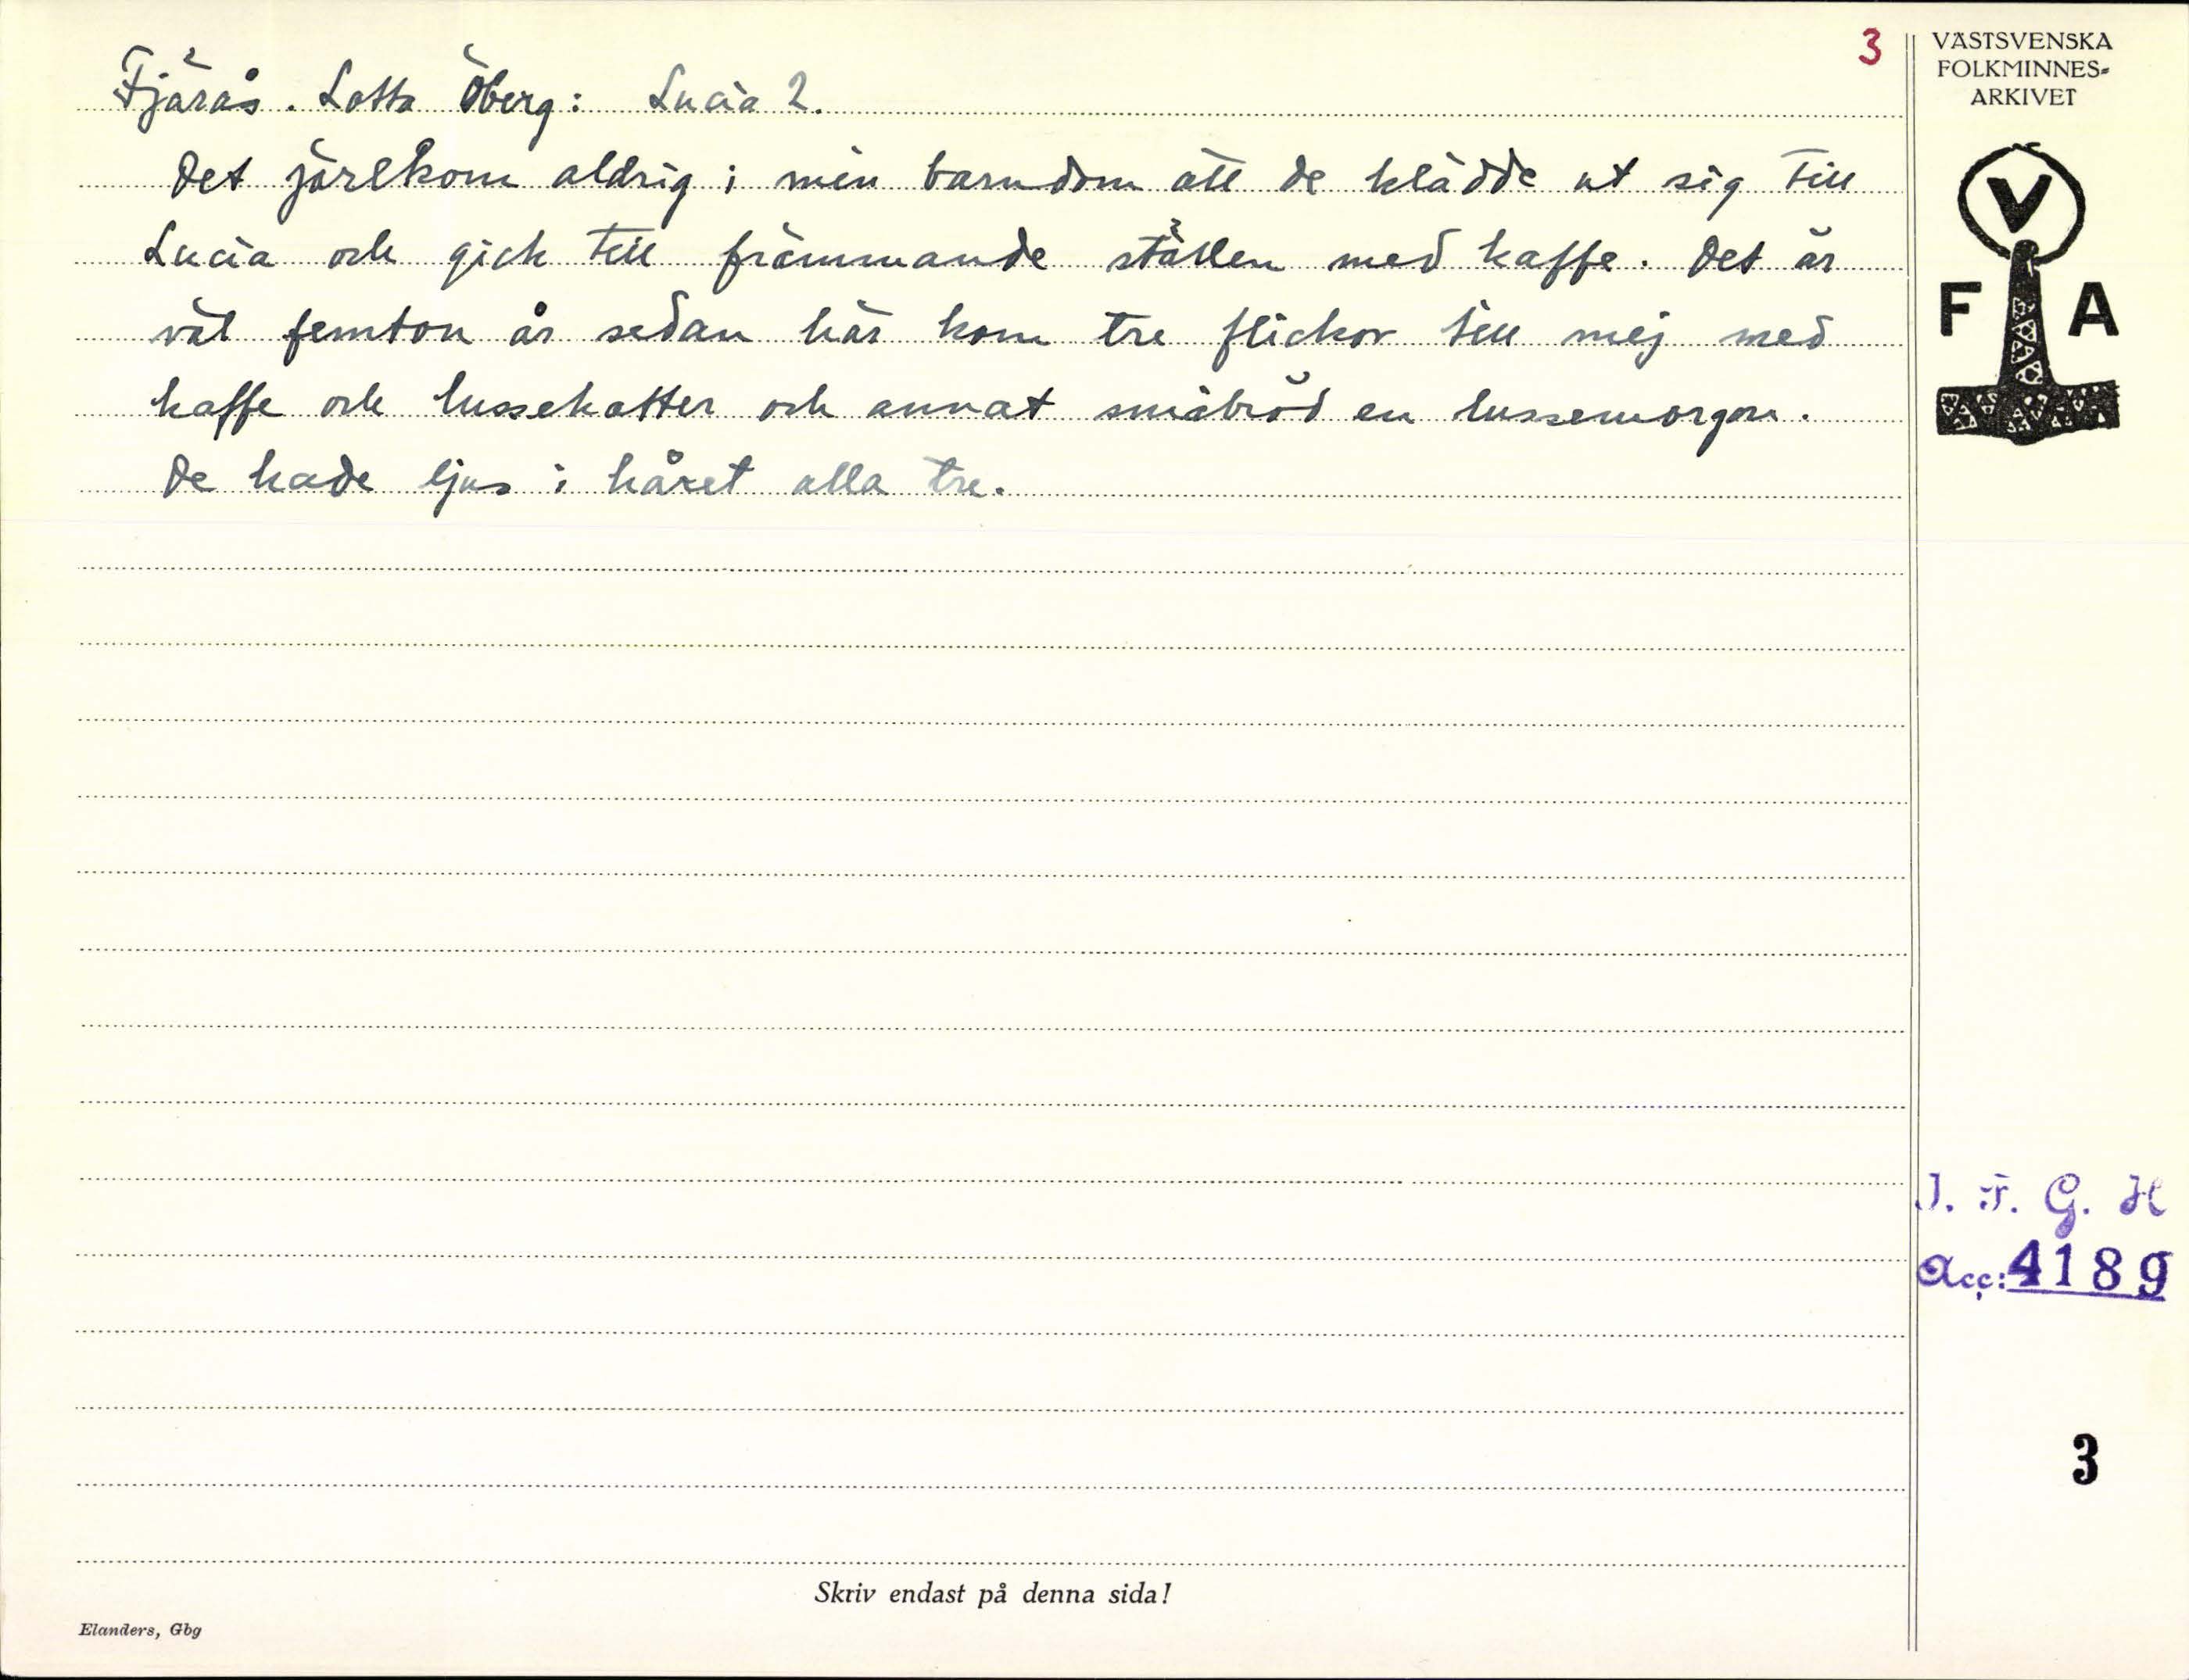 3
Fjärås. Lotta Öberg: Lucia 2.
Det förekom aldrig i min barndom att de klädde ut sig till
Lucia och gick till främmande ställen med kaffe. Det är
väl femton år sedan här kom tre flickor till mej med
kaffe och lussekatter och annat småbröd en lussemorgon.
De hade ljus i håret alla tre.
Skriv endast på denna sida!
Elanders, Gbg
VÄSTSVENSKA
FOLKMINNES-
ARKIVET
V
F A
I. F. G. H
Acc: 4189
3